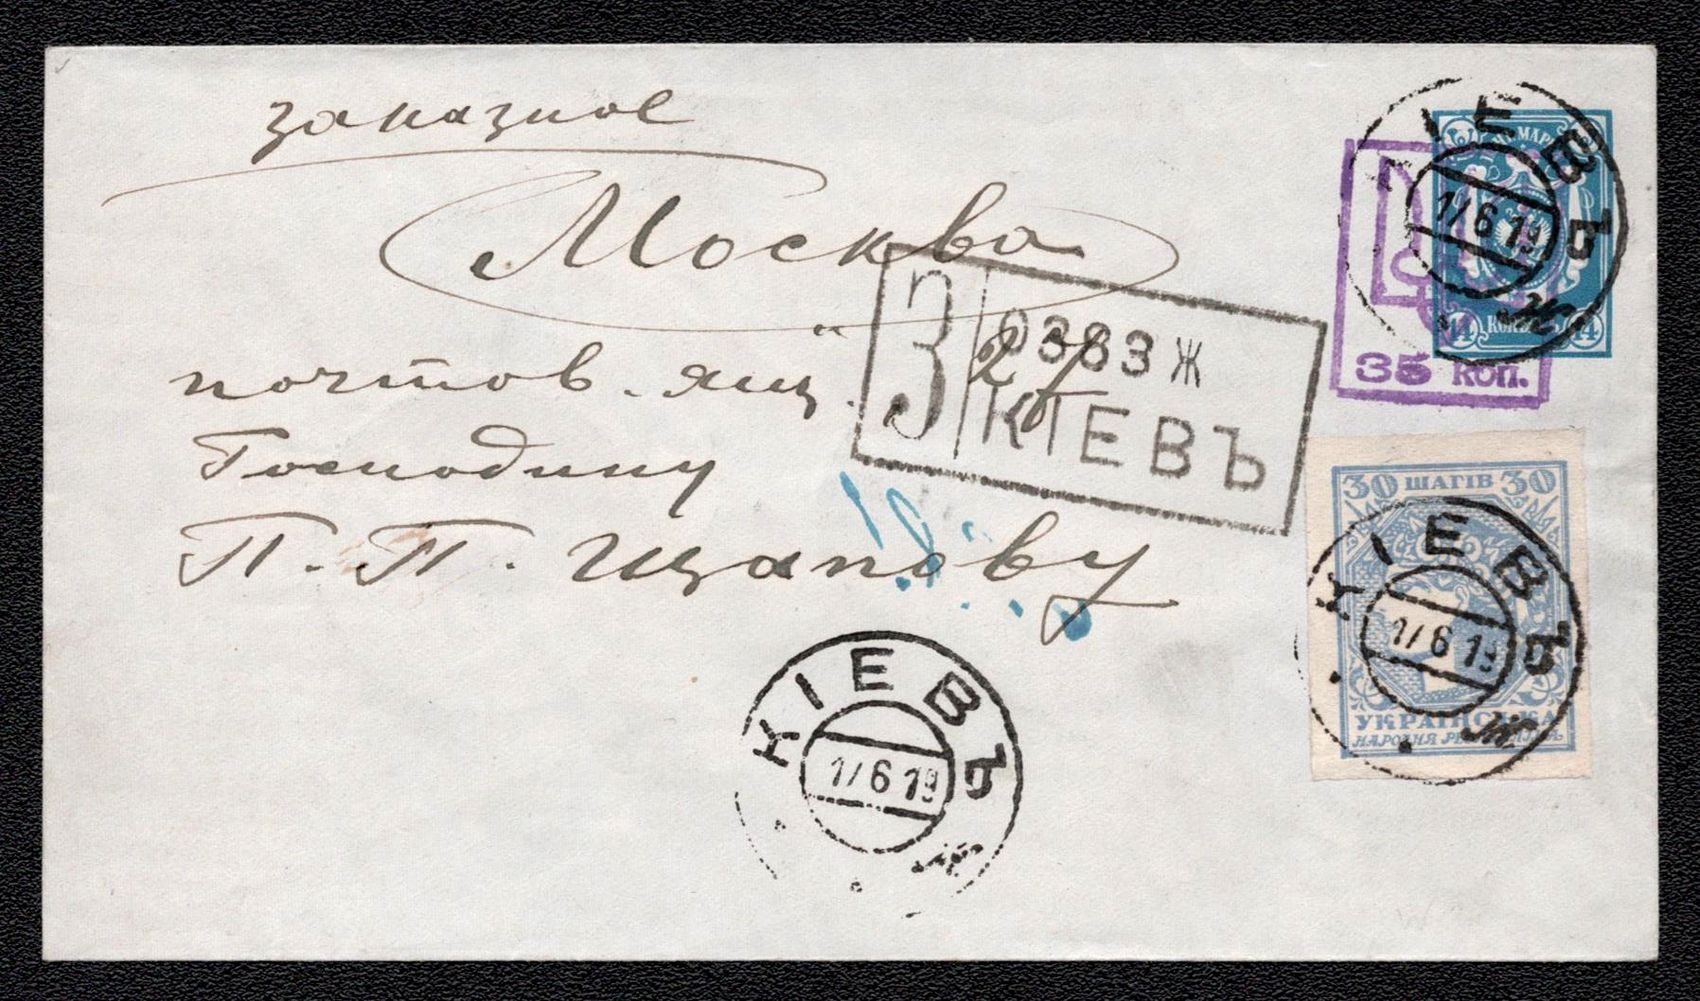 заказное
Москва
почтов. ящ. 27
Господину
П. П. Щапову
З 0383 Ж
КІЕВЪ
КІЕВЪ
17 6 19
Ж
35 коп.
14 КОП. 14
30 ШАГІВ 30
УКРАЇНСЬКА
НАРОДНЯ РЕСПУБЛІКА
КІЕВЪ
17 6 19
Ж
КІЕВЪ
17 6 19
Ж